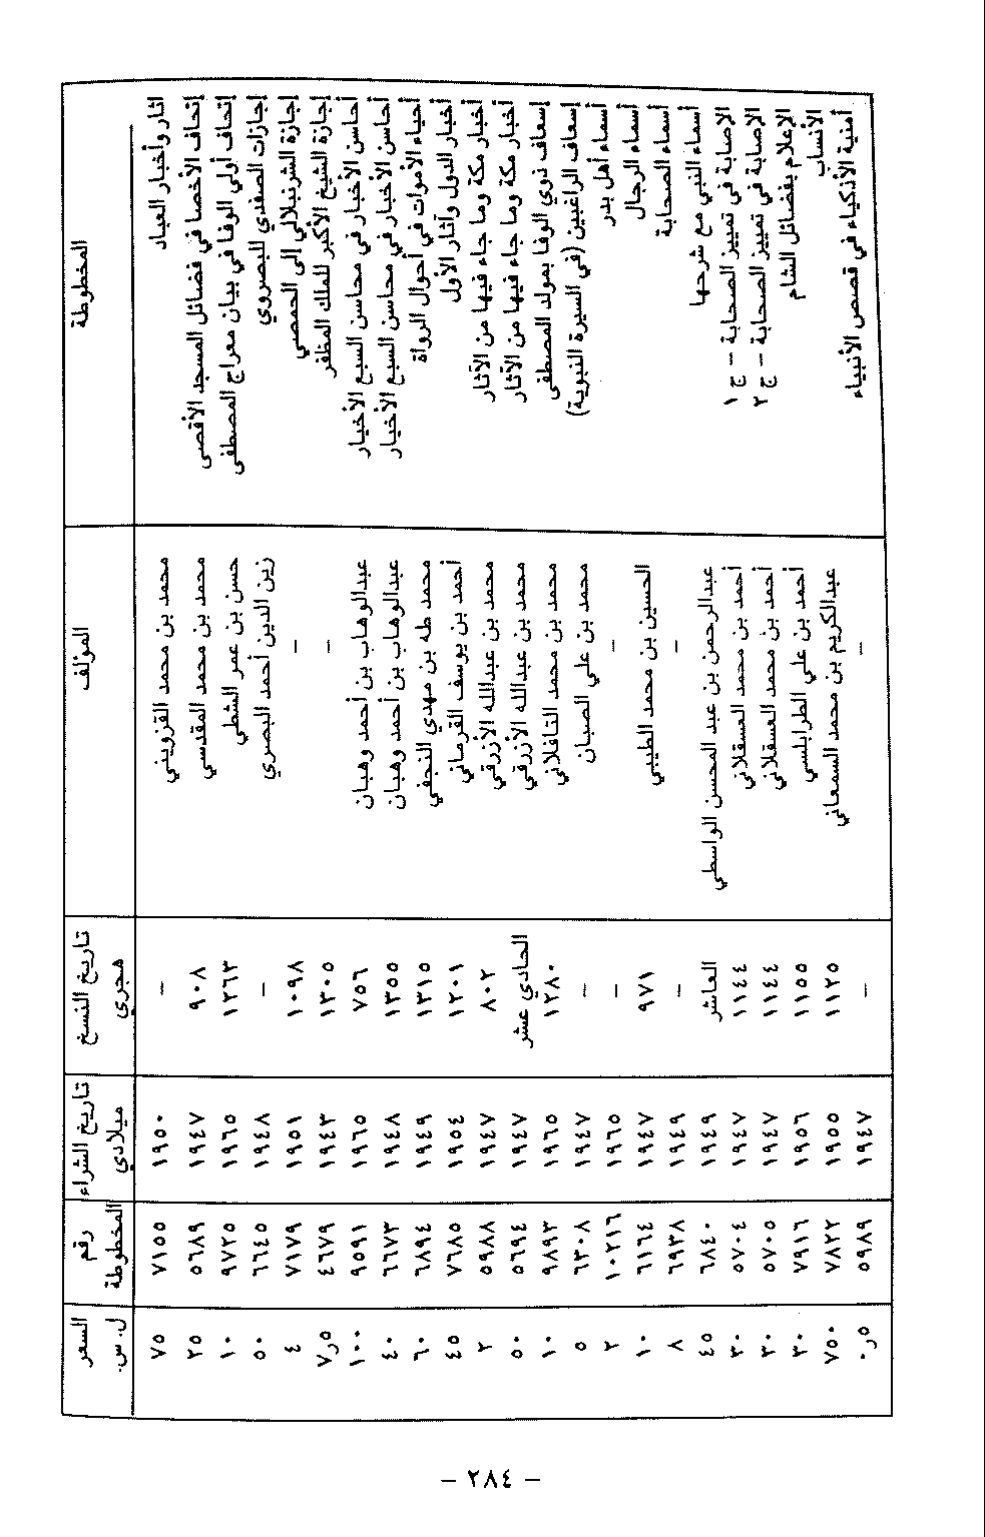 المخطوطة المؤلف تاريخ النسخ هجري تاريخ الشراء ميلادي رقم المخطوطة السعر ل.س.
آثار وأخبار العباد محمد بن محمد القزويني – ١٩٥٠ ٧١٥٥ ٧٥
إتحاف الأخصا في فضائل المسجد الأقصى محمد بن محمد المقدسي ٩٠٨ ١٩٤٧ ٥٦٨٩ ٢٥
إتحاف أولي الوفا في بيان معراج المصطفى حسن بن عمر الشطي ١٢٦٣ ١٩٦٥ ٩٧٢٥ ١٠
إجازات الصفدي للبصروي زين الدين أحمد البصري – ١٩٤٨ ٦٦٤٥ ٥٠
إجازة الشرنبلالي إلى الحمصي – ١٠٩٨ ١٩٥١ ٧١٧٩ ٤
إجازة الشيخ الأكبر للملك المظفر – ١٣٠٥ ١٩٤٣ ٤٦٧٩ ٧٫٥
أحاسن الأخبار في محاسن السبع الأخيار عبدالوهاب بن أحمد وهبان ٧٥٦ ١٩٦٥ ٩٥٩١ ١٠٠
أحاسن الأخبار في محاسن السبع الأخيار عبدالوهاب بن أحمد وهبان ١٣٥٥ ١٩٤٨ ٦٦٧٣ ٤٠
أحياء الأموات في أحوال الرواة محمد طه بن مهدي النجفي ١٣١٥ ١٩٤٩ ٦٨٩٤ ٦٠
أخبار الدول وآثار الأول أحمد بن يوسف القرماني ١٢٠١ ١٩٥٤ ٧٦٨٥ ٤٥
أخبار مكة وما جاء فيها من الآثار محمد بن عبدالله الأزرقي ٨٠٢ ١٩٤٧ ٥٩٨٨ ٢
أخبار مكة وما جاء فيها من الآثار محمد بن عبدالله الأزرقي الحادي عشر ١٩٤٧ ٥٦٩٤ ٥٠
إسعاف ذوي الوفا بمولد المصطفى محمد بن محمد التافلاتي ١٢٨٠ ١٩٦٥ ٩٨٩٣ ١٠
إسعاف الراغبين (في السيرة النبوية) محمد بن علي الصبان – ١٩٤٧ ٦٣٠٨ ٥
أسماء أهل بدر – – ١٩٦٥ ١٠٢١٦ ٢
أسماء الرجال الحسين بن محمد الطيبي ٩٧١ ١٩٤٧ ٦١٦٤ ١٠
أسماء الصحابة – – ١٩٤٩ ٦٩٣٨ ٨
أسماء النبي مع شرحها عبدالرحمن بن عبد المحسن الواسطي العاشر ١٩٤٩ ٦٨٤٠ ٤٥
الإصابة في تمييز الصحابة – ج ١ أحمد بن محمد العسقلاني ١١٤٤ ١٩٤٧ ٥٧٠٤ ٣٠
الإصابة في تمييز الصحابة – ج ٢ أحمد بن محمد العسقلاني ١١٤٤ ١٩٤٧ ٥٧٠٥ ٣٠
الإعلام بفضائل الشام أحمد بن علي الطرابلسي ١١٥٥ ١٩٥٦ ٧٩١٦ ٣٠
الأنساب عبدالكريم بن محمد السمعاني ١١٢٥ ١٩٥٥ ٧٨٢٢ ٧٥٠
أمنية الأذكياء في قصص الأنبياء – – ١٩٤٧ ٥٩٨٩ ٠٫٥
– ٢٨٤ –